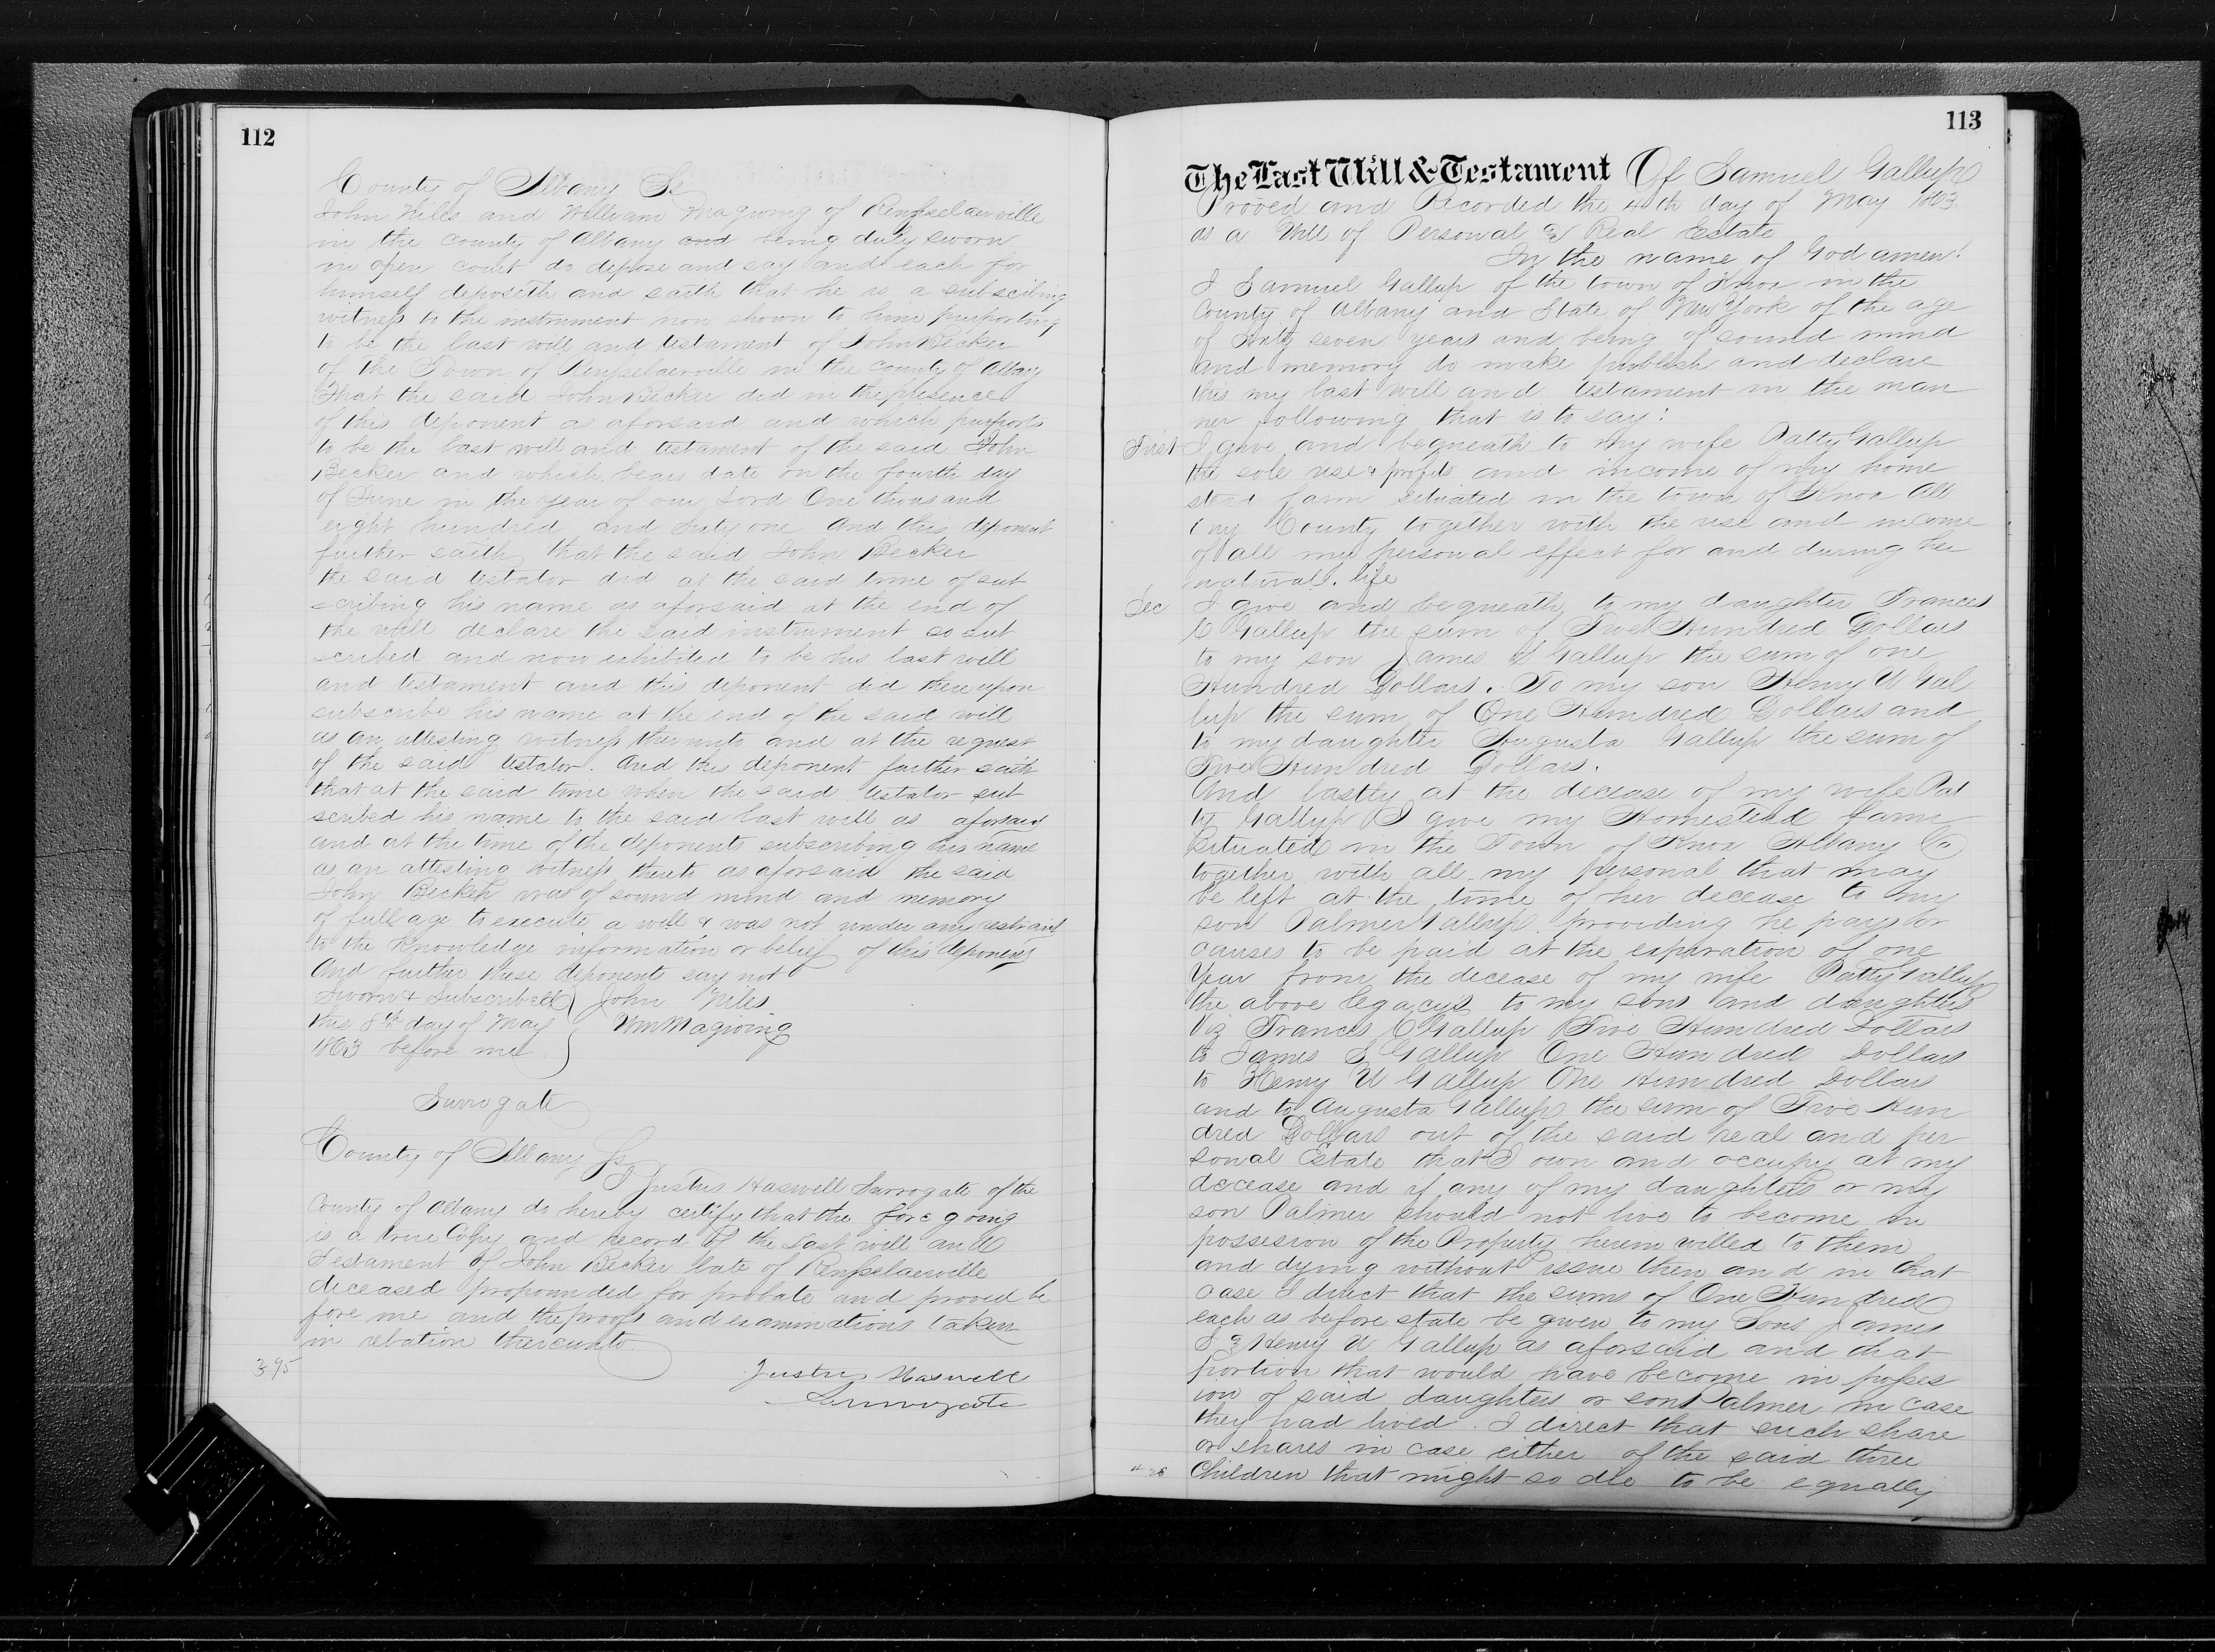 112
County of Albany Ss
John Niles and William Magiving of Rensselaerville
in the county of Albany and being duly sworn
in open court do depose and say and each for
himself deposeth and saith that he is a subscibing
witness to the instrument now shown to him purporting
to be the last will and testament of John Becker
of the Town of Rensselaerville in the county of Albany
That the said John Becker did in the presence
of this deponent as aforsaid and which purports
to be the last will and testament of the said John
Becker and which bears date on the fourth day
of June in the year of our Lord One thousand
eight hundred and sixty one and this deponent
further saith that the said John Becker
the said testator did at the said time of sub
scribing his name as aforsaid at the end of
the will declare the said instrument so sub
scribed and now exhibited to be his last will
and testament and this deponent did thereupon
subscribe his name at the end of the said will
as an attesting witness thereunto and at the request
of the said testator. And this deponent further saith
that at the said time when the said testator sub
scribed his name to the said last will as aforsaid
and at the time of the deponents subscribing his name
as an attesting witness thereto as aforsaid the said
John Becker was of sound mind and memory
of full age to execute a will & was not under any restraint
to the knowledge information or belief of this deponent
And further these deponents say not
Sworn & Subscribed John Niles
this 8th day of May Wm Magiving
1863 before me
Surrogate
County of Albany Ss
I Justus Haswell Surrogate of the
County of Albany do hereby certify that the foregoing
is a true Copy and record of the Last will and
Testament of John Becker late of Rensselaerville
deceased propounded for probate and proved be
fore me and the proofs and examinations taken
in relation thereunto.
395
Justus Haswell
Surrogate
113
The Last Will & Testament Of Samuel Gallup
Proved and Recorded the 4th day of May 1863
as a Will of Personal & Real Estate
In the name of God amen!
I Samuel Gallup of the town of Knox in the
County of Albany and State of New York of the age
of Sixty seven years and being of sound mind
and memory do make publish and declare
this my last will and testament in the man
ner following that is to say:
First I give and bequeath to my wife Patty Gallup
the sole use & profits and income of my home
stead farm situated in the town of Knox Alb
any County together with the use and income
of all my personal effect for and during her
natural life
Sec I give and bequeath to my daughter Frances
C Gallup the sum of Five Hundred Dollars
to my son James S Gallup the sum of one
Hundred Dollars. To my son Henry U Gal
lup the sum of One Hundred Dollars and
to my daughter Augusta Gallup the sum of
Five Hundred Dollars.
And lastly at the decease of my wife Pat
ty Gallup I give my Homestead farm
Situated in the Town of Knox Albany Co
together with all my personal that may
be left at the time of her decease to my
son Palmer Gallup providing he pays or
causes to be paid at the expiration of one
Year from the decease of my wife Patty Gallup
the above legacys to my sons and daughters
Viz Frances C Gallup Five Hundred Dollars
to James S Gallup One Hundred Dollars
to Henry U Gallup One Hundred Dollars
and to Augusta Gallup the sum of Five Hun
dred Dollars out of the said real and per
sonal Estate that I own and occupy at my
decease and if any of my daughters or my
son Palmer should not live to become in
possesion of the Property herein willed to them
and dying without issue then and in that
case I direct that the sums of One Hundred
each as before state be given to my Sons James
S & Henry U Gallup as aforsaid and that
portion that would have become in posses
ion of said daughters or son Palmer in case
they had lived. I direct that such share
or shares in case either of the said three
Children that might so die to be equally